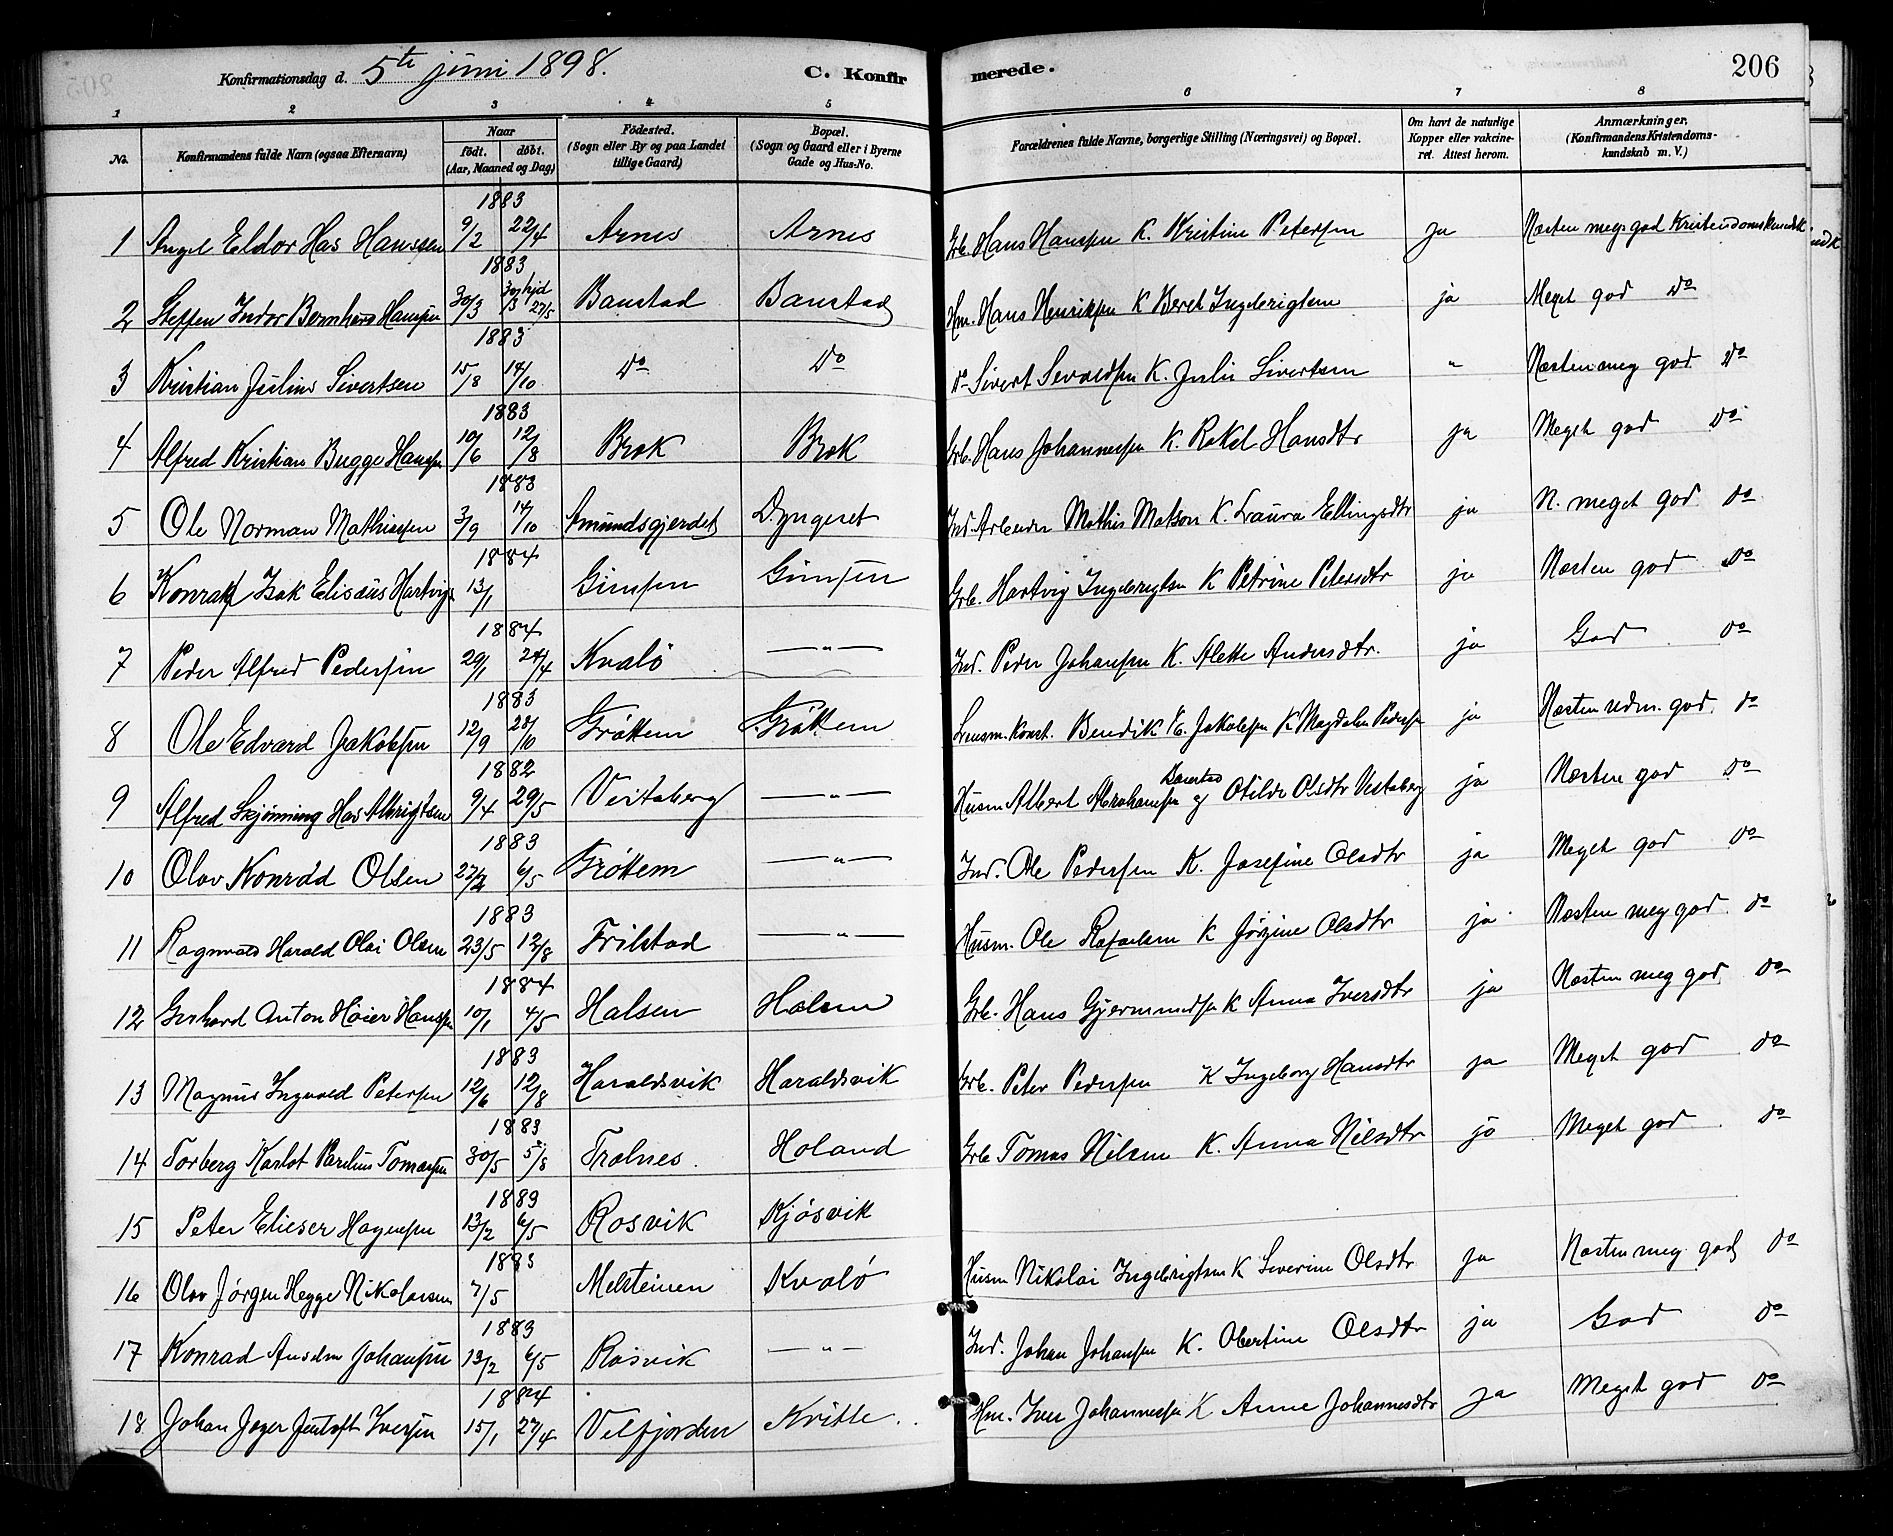 Konfirmationsdag d. 5te juni 1898. C. Konfirmerede. 206
1 2 3 4 5 6 7 8
No. Konfirmandens fulde Navn (ogsaa Efternavn) Naar født. døbt. (Aar, Maaned og Dag) Födested. (Sogn eller By og paa Landet tillige Gaard) Bopæl. (Sogn og Gaard eller i Byerne Gade og Hus-No. Forældrenes fulde Navne, borgerlige Stilling (Næringsvei) og Bopæl. Om havt de naturlige Kopper eller vakcineret. Attest herom. Anmærkninger. (Konfirmandens Kristendomskundskab m. V.)
1883
1 Angel Eldor Has Hanssen 9/2 22/4 Arnes Arnes Grb. Hans Hanssen K. Kristine Petersen ja Næsten meg. god Kristendomskundsk
1883
2 Steffen Indor Bernhard Hanssen 30/3 30/3 hjd 27/5 Baustad Baustad Hm. Hans Henriksen K Beret Ingebrigtsen ja Meget god do
1883
3 Kristian Julius Sivertsen 15/8 14/10 do do do Sivert Sevaldsen K. Julie Sivertsen " Næsten meg god do
1883
4 Alfred Kristian Bugge Hanssen 10/6 12/8 Brok Brok Grb. Hans Johannessen K. Rakel Hansdtr ja Meget god do
1883
5 Ole Norman Mathissen 3/9 14/10 Amundsgjerdet Dyngeset Ind. Arbeider Mathis Matson K. Laura Ellingsdtr ja N. meget god do
1884
6 Konrad Isak Elisæus Hartvigs 13/1 Gimsen Gimsen Grb. Hartvig Ingebrigtsen K Petrine Petersdtr ja Næsten god do
1884
7 Peder Alfred Pedersen 29/1 24/4 Kvalö — " — Ind. Peder Johansen K. Alette Andersdtr. ja God do
1883
8 Ole Edvard Jakobsen 12/9 28/10 Gröttem Gröttem Lensm. konst. Bendik K. Jakobsen K Magdalen Peders ja Næsten udm. god. do
1882
9 Alfred Skjönning Has Albrigtsen 9/4 29/5 Vistaberg — " — Husm Albert Abrahamsen Baustad og Otilde Olsdtr Vestaberg ja Næsten god do
1883
10 Olav Konrad Olsen 27/2 6/5 Gröttem — " — Ind. Ole Pedersen K. Josefine Olsdtr ja Meget god do
1883
11 Ragnvald Harald Olai Olsen 23/5 12/8 Trilstad — " — Husm. Ole Rafaelsen K Jörgine Olsdtr ja Næsten meg god. do
1884
12 Gerhard Anton Höier Hanssen 10/1 4/5 Halsen Halsen Grb. Hans Gjermundsen K Anna Iversdtr ja Næsten meg god do
1883
13 Magnus Ingvald Petersen 12/6 12/8 Haraldsvik Haraldsvik Grb. Peter Pedersen K Ingeborg Hansdtr ja Meget god do
1883
14 Torberg Karlot Parelius Tomassen 30/5 5/8 Tralnes. Holand Grb Tomas Nilsen K. Anna Nilsdtr ja Meget god do
1883
15 Peter Elieser Hagensen 13/2 6/5 Rosvik Kjösvik
1883
16 Olav Jörgen Hegge Nikolaisen 7/5 Melsteinen Kvalö Husm Nikolai Ingebrigtsen K Severine Olsdtr ja Næsten meg. god do
1883
17 Konrad Anselm Johansen 13/2 6/5 Rosvik — " — Ind. Johan Johansen K. Obertine Olsdtr ja God do
1884
18. Johan Jeger Jentoft Iversen 15/1 27/4 Velfjorden Kvitte. Hm. Iver Johannessen K Anne Johannesdtr ja Meget god do